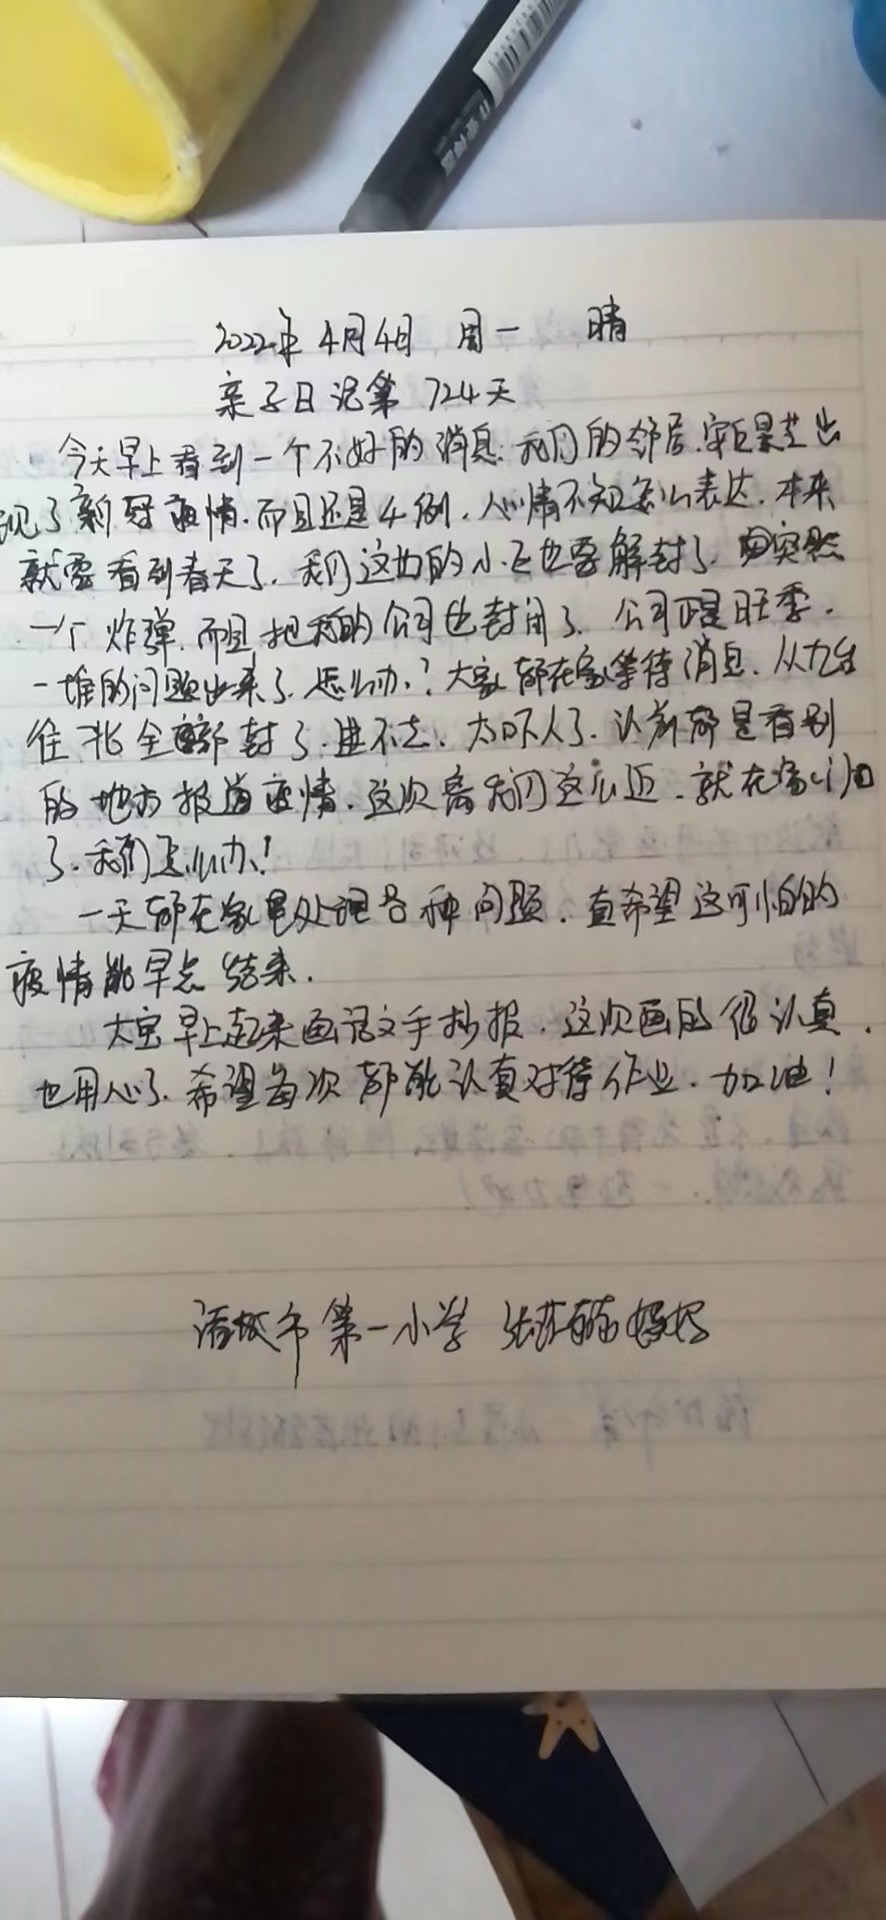 2022年4月4日 周一 晴
亲子日记第724天
今天早上看到一个不好的消息:我们的邻居.出
现了新冠疫情.而且还是4例.心情不知怎么表达.本来
就要看到春天了.我们这边的小区也要解封了.突然
一个炸弹.而且把我的公司也封闭了.公司正是旺季.
一堆的问题出来了.怎么办?大家都在家等待消息.从九台
往北全部封了.进不去.太吓人了.以前都是看别
的地方报道疫情.这次离我们这么近.就在家门口
了.我们怎么办!
一天都在家里处理各种问题.真希望这可怕的
疫情能早点结束.
大宝早上起来画语文手抄报.这次画的很认真.
也用心了.希望每次都能认真对待作业.加油!
诸城市第一小学 妈妈